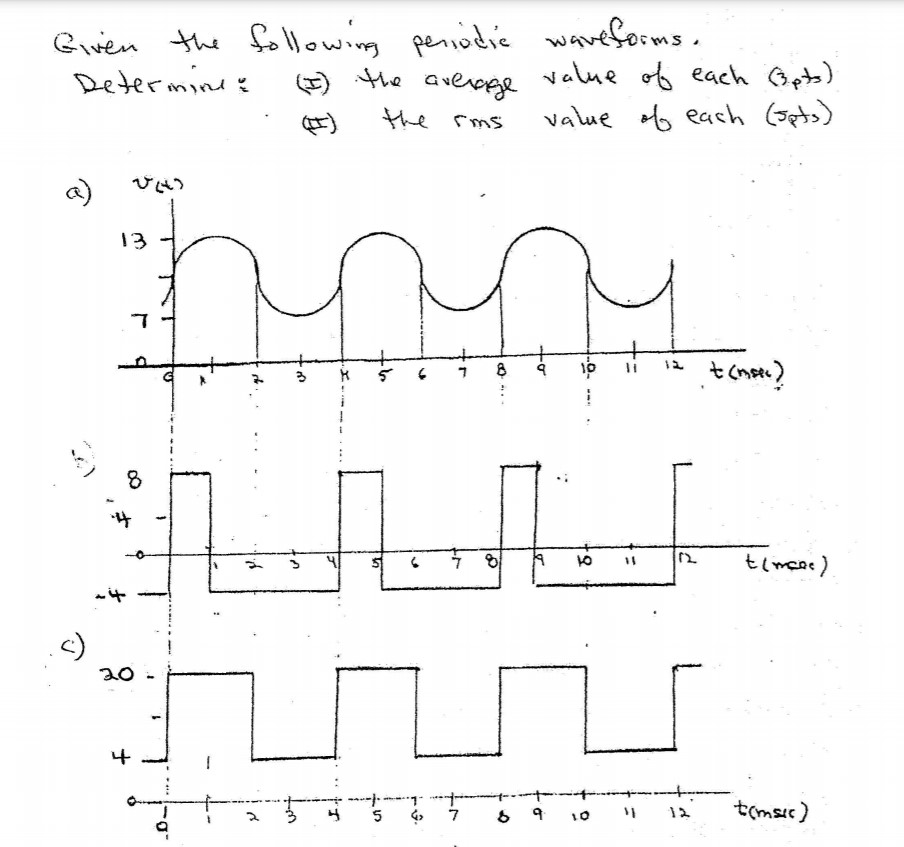 Given the following periodic waveforms.
Determine: (I) the average value of each (3pts)
(II) the rms value of each (5pts)
a) v(t)
13
7
0
0 1 2 3 4 5 6 7 8 9 10 11 12 t(msec)
b)
8
4
0 1 2 3 4 5 6 7 8 9 10 11 12 t(msec)
-4
c)
20
4
0
0 1 2 3 4 5 6 7 8 9 10 11 12 t(msec)